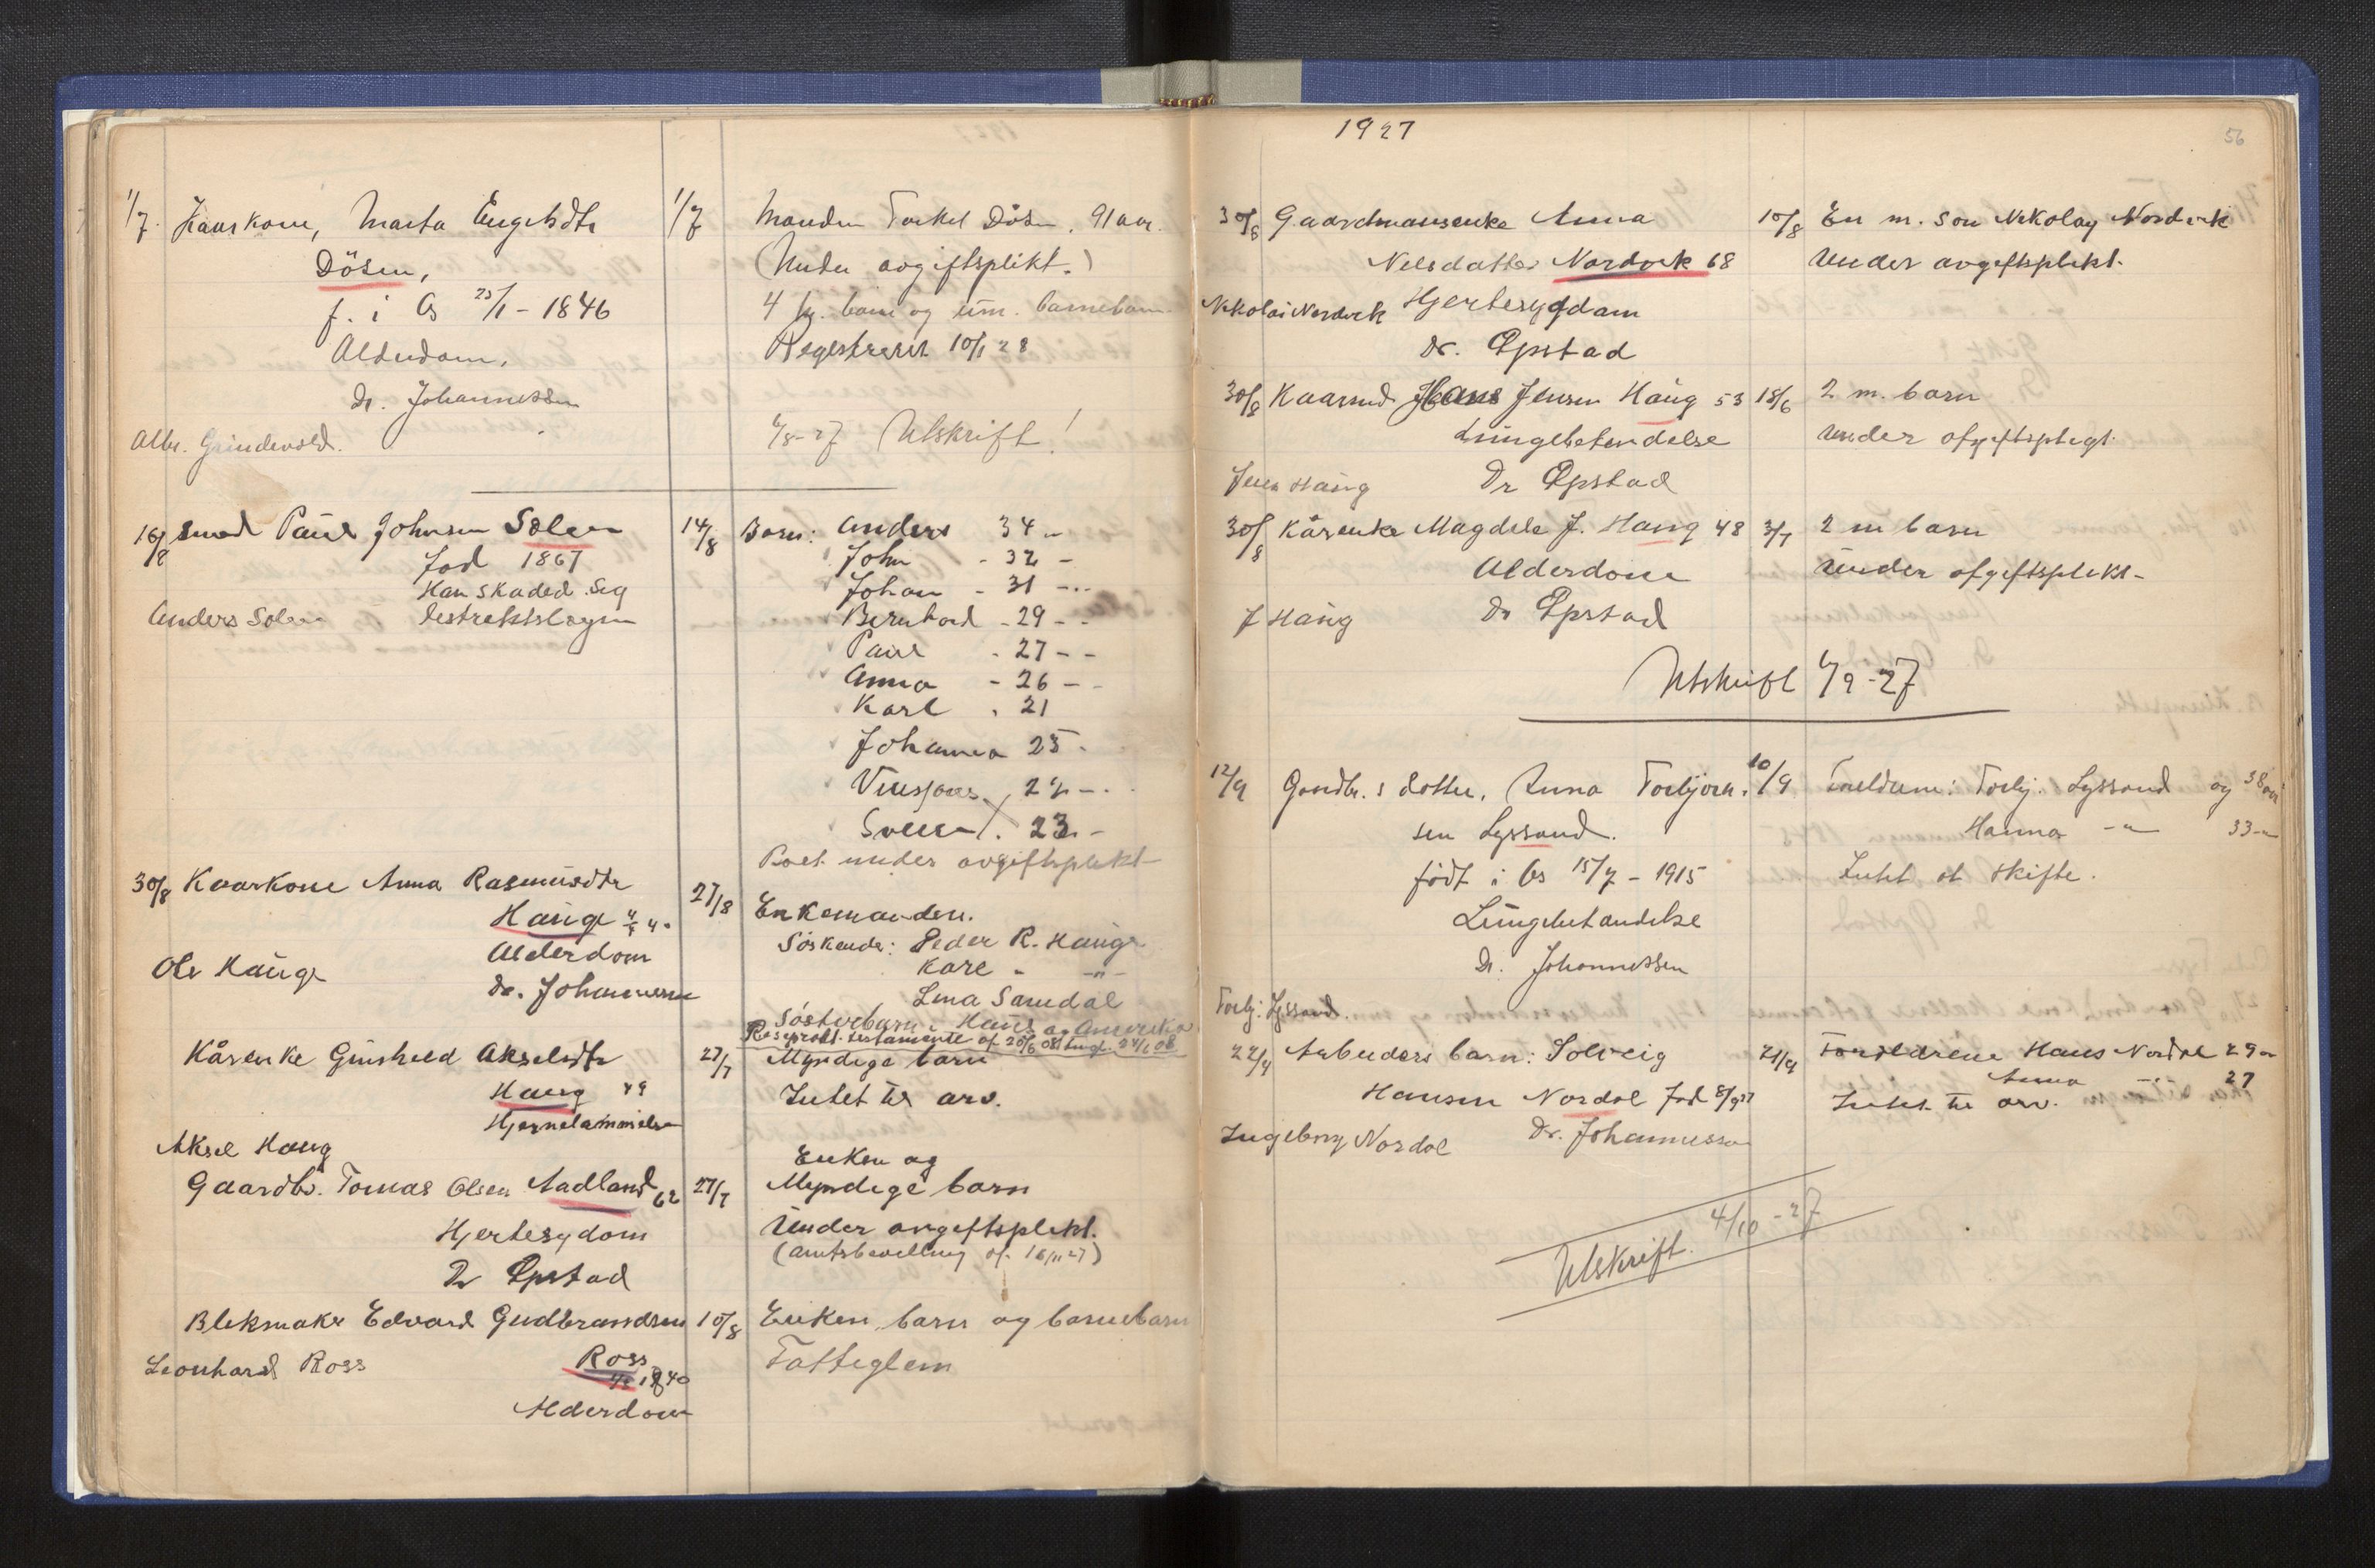 1/7. Kaarkone, Marta Engelsdtr 1/7 Manden Torkel Dösen, 91 aar.
Dösen, (Under avgiftsplikt.)
f. i Os 25/1 - 1846 4 barn og um. barnebarn
Alderdom, Registreret 10/1 28
Dr. Johannessen
Alb. Grindevold. 6/8-27 Utskrift!
16/8 Smed Paul Johnsen Solem 14/8 Born: Anders 34 -
Fød 1867 John - 32 -
Han skaded seg Johan - 31 -
Anders Solem Distriktslægen Bernhard - 29 -
Paul - 27 - -
Anna - 26 - -
Karl . 21
Johanna 25 -
24 -
23 -
Boet under avgiftsplikt
30/8 Kaarkone Anna Rasmusdtr 27/8 Enkemanden.
Hauge Söskende: Peder R. Hauge
Alderdom Kare - -"-
Ole Hauge Dr. Johannessen Lina Samdal
Søsterbarn i Haus og Amerika
Resiprokt testamente af 20/6 08 tingl. 24/6 08
Kårenke Gunhild Akselsdtr 27/7 Myndige barn
Haug 79 Intet til arv.
Hjernelammelse
Aksel Haug
Enken og
Gaardbr. Tomas Olsen Aadland 62 27/7 Myndige barn
Hjertesydom Under avgiftsplikt.
(Amtsbevilling af 16/11 27)
Dr Opstad
Blekmaker Edvard Gudbrandsen 10/8 Enken, barn og barnebarn
Leonhard Ross Ross Fatteglem
1840
Alderdom
1927 56
30/8 Gaardmansenke Anna 10/8 En m. son Nikolay Nordvik
Nelsdatter Nordvik 68 Under avgeftsplikt.
Nikolai Nordvik Hjertesygdam
Dr. Opstad
30/8 Kaarmd Hans Jensen Haug 53 18/6 2 m. barn
Lungebetendelse Under afgeftsplegt.
Jens Haug Dr Opstad
30/8 Kårenke Magdele J. Haug 48 3/7 2 m barn
Alderdom Under afgeftsplikt-
J Haug Dr Opstad
Utskrift 6/9-27
12/9 Gardbr. s dotter, Anna Torbjörn- 10/9 Foreldrene: Torbj. Lyssand og 38 aar
sen Lyssand. Hanna -"- 33 -"-
født i Os 15/7 - 1915 Intet at skifte.
Lungebetændelse
Dr. Johannessen
Torbj: Lyssand.
22/9 Arbeiders barn: Solveig 21/9 Foreldrene Hans Nordal 29 aar
Anna -"- 27
Hansen Nordal Fød 8/9 27 Intet til arv.
Ingeborg Nordal Dr. Johannessen
Utskrift. 4/10 - 27